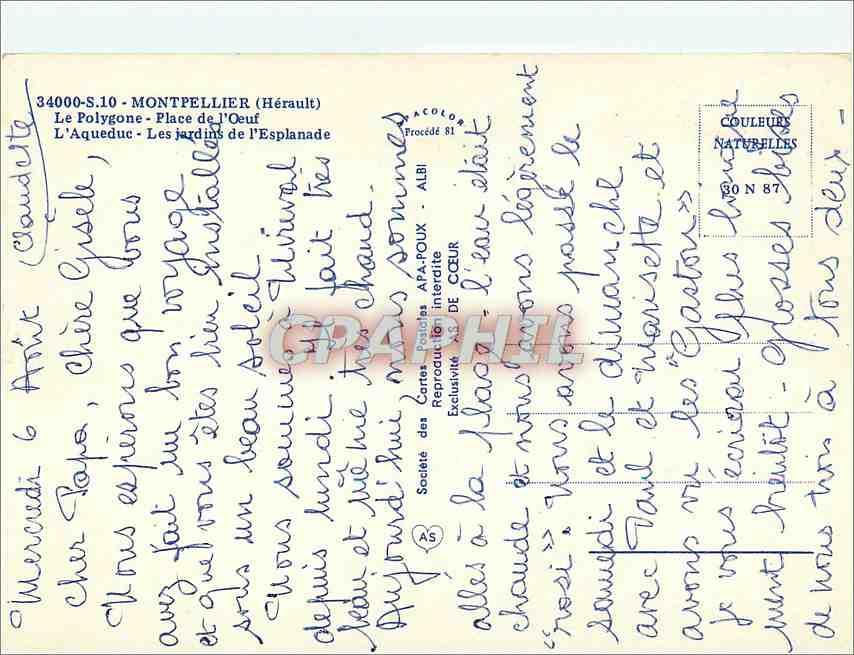 34000-S.10 - MONTPELLIER (Hérault)
Le Polygone - Place de l'Œuf
L'Aqueduc - Les jardins de l'Esplanade
APACOLOR
Procédé 81
COULEURS
NATURELLES
30 N 87
Société des Cartes Postales APA-POUX - ALBI
Reproduction interdite
Exclusivité AS DE CŒUR
AS
CPAPHIL
Mercredi 6 Août
Claudette
Cher Papa, chère Gisèle,
Nous espérons que vous
avez fait un bon voyage
et que vous êtes bien installés
sous un beau soleil.
Nous sommes à
depuis lundi. Il fait très
beau et même très chaud.
Aujourd'hui, nous sommes
allés à la plage - l'eau était
chaude et nous avons légèrement
"rosi". Nous avons passé le
samedi et le dimanche
avec Paul et Marisette et
avons vu les "Gaston"
Je vous écrirai plus longue
ment bientôt - Grosses bises
de nous trois à tous deux -